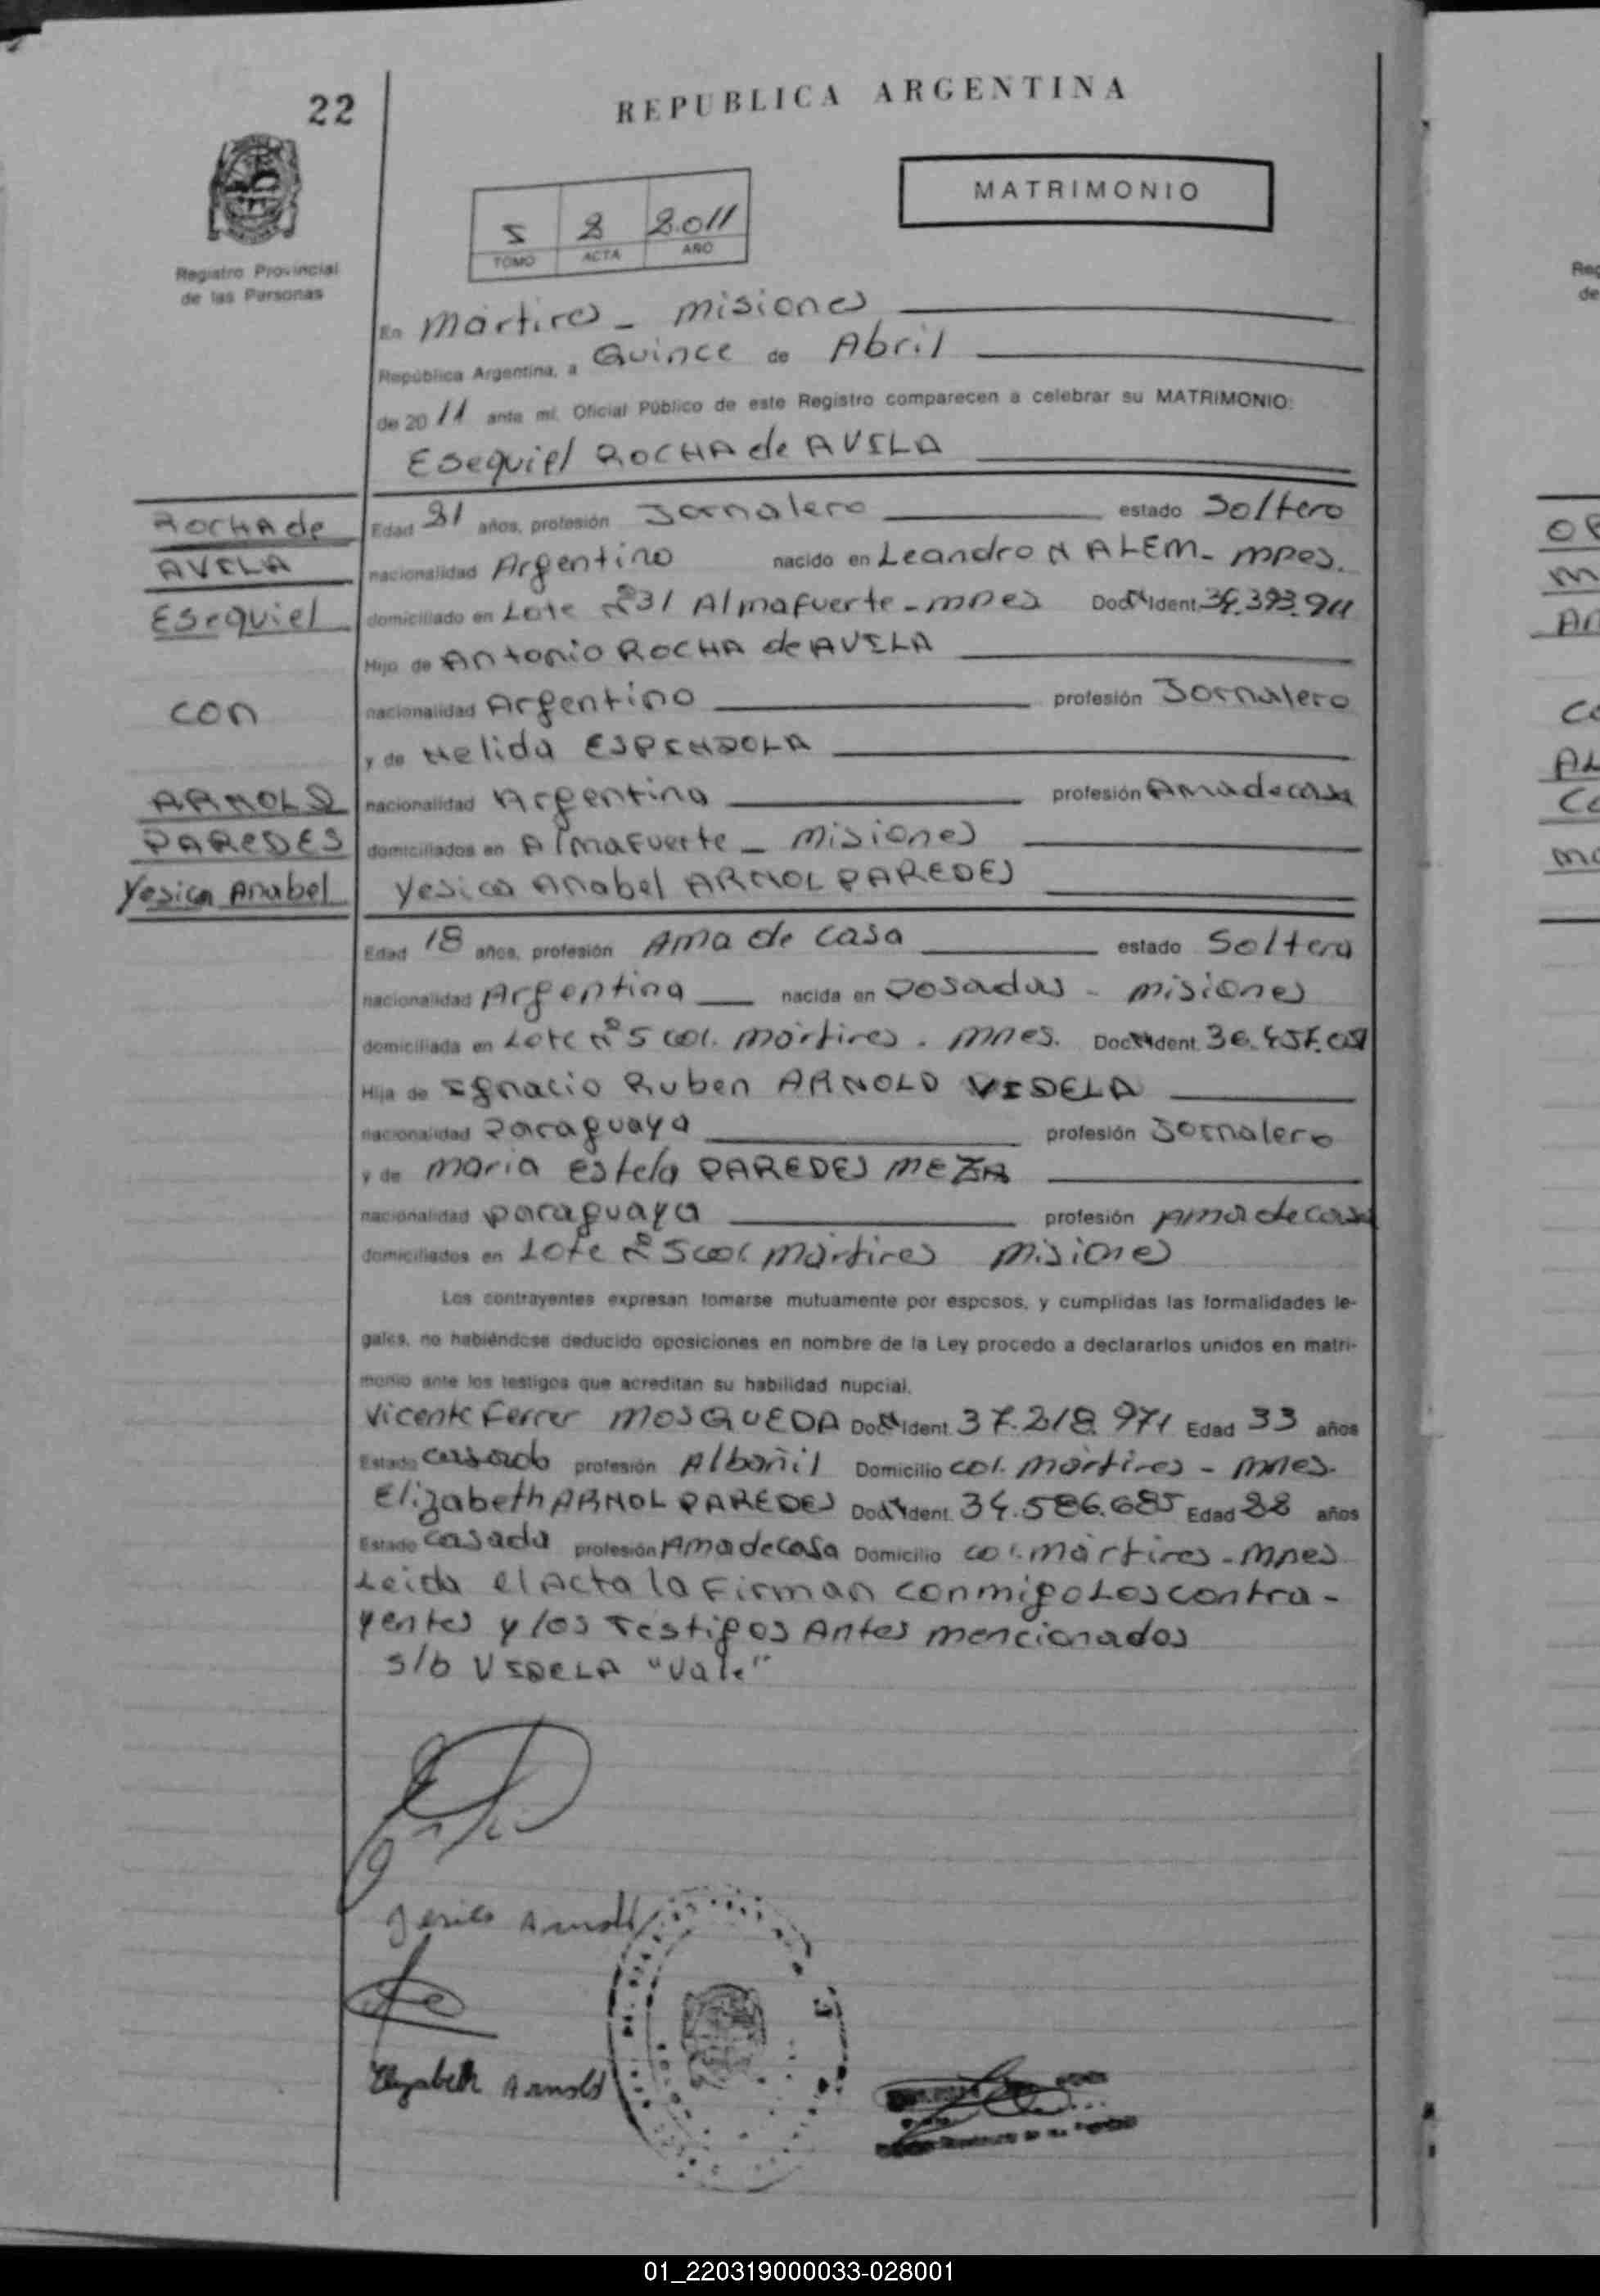 22
REPUBLICA ARGENTINA
MATRIMONIO
5 2 2.011
TOMO ACTA AÑO
Registro Provincial
de las Personas
En Mártires - Misiones
República Argentina, a Quince de Abril
de 2011 ante mí, Oficial Público de este Registro comparecen a celebrar su MATRIMONIO:
Esequiel ROCHA de AVILA
ROCHA de
AVILA
Esequiel
con
ARNOLD
PAREDES
Yesica Anabel
Edad 21 años, profesión Jornalero estado Soltero
nacionalidad Argentino nacido en Leandro N ALEM - Mnes.
domiciliado en Lote Nº31 Almafuerte - Mnes Doc. Ident.
Hijo de Antonio ROCHA de AVILA
nacionalidad Argentino profesión Jornalero
y de Nelida ESPINDOLA
nacionalidad Argentina profesión Ama de casa
domiciliados en Almafuerte - Misiones
Yesica Anabel ARNOL PAREDES
Edad 18 años, profesión Ama de casa estado Soltera
nacionalidad Argentina nacida en Posadas - Misiones
domiciliada en Lote Nº5 col. Mártires - Mnes. Doc. Ident.
Hija de Ignacio Ruben ARNOLD VIDELA
nacionalidad Paraguaya profesión Jornalero
y de Maria Estela PAREDES MEZA
nacionalidad paraguaya profesión Ama de casa
domiciliados en Lote Nº5 col. Mártires Misiones
Los contrayentes expresan tomarse mutuamente por esposos, y cumplidas las formalidades le-
gales, no habiéndose deducido oposiciones en nombre de la Ley procedo a declararlos unidos en matri-
monio ante los testigos que acreditan su habilidad nupcial.
Vicente Ferrer MOSQUEDA Doc. Ident. 37.218.971 Edad 33 años
Estado casado profesión Albañil Domicilio col. Mártires - Mnes.
Elizabeth ARNOL PAREDES Doc. Ident. 34.586.685 Edad 22 años
Estado casada profesión Ama de casa Domicilio col. Mártires - Mnes
Leida el Acta la Firman conmigo Los contra-
yentes y los Testigos Antes mencionados
s/b VIDELA "Vale"
Jesica Arnold
Elizabeth Arnold
01_220319000033-028001